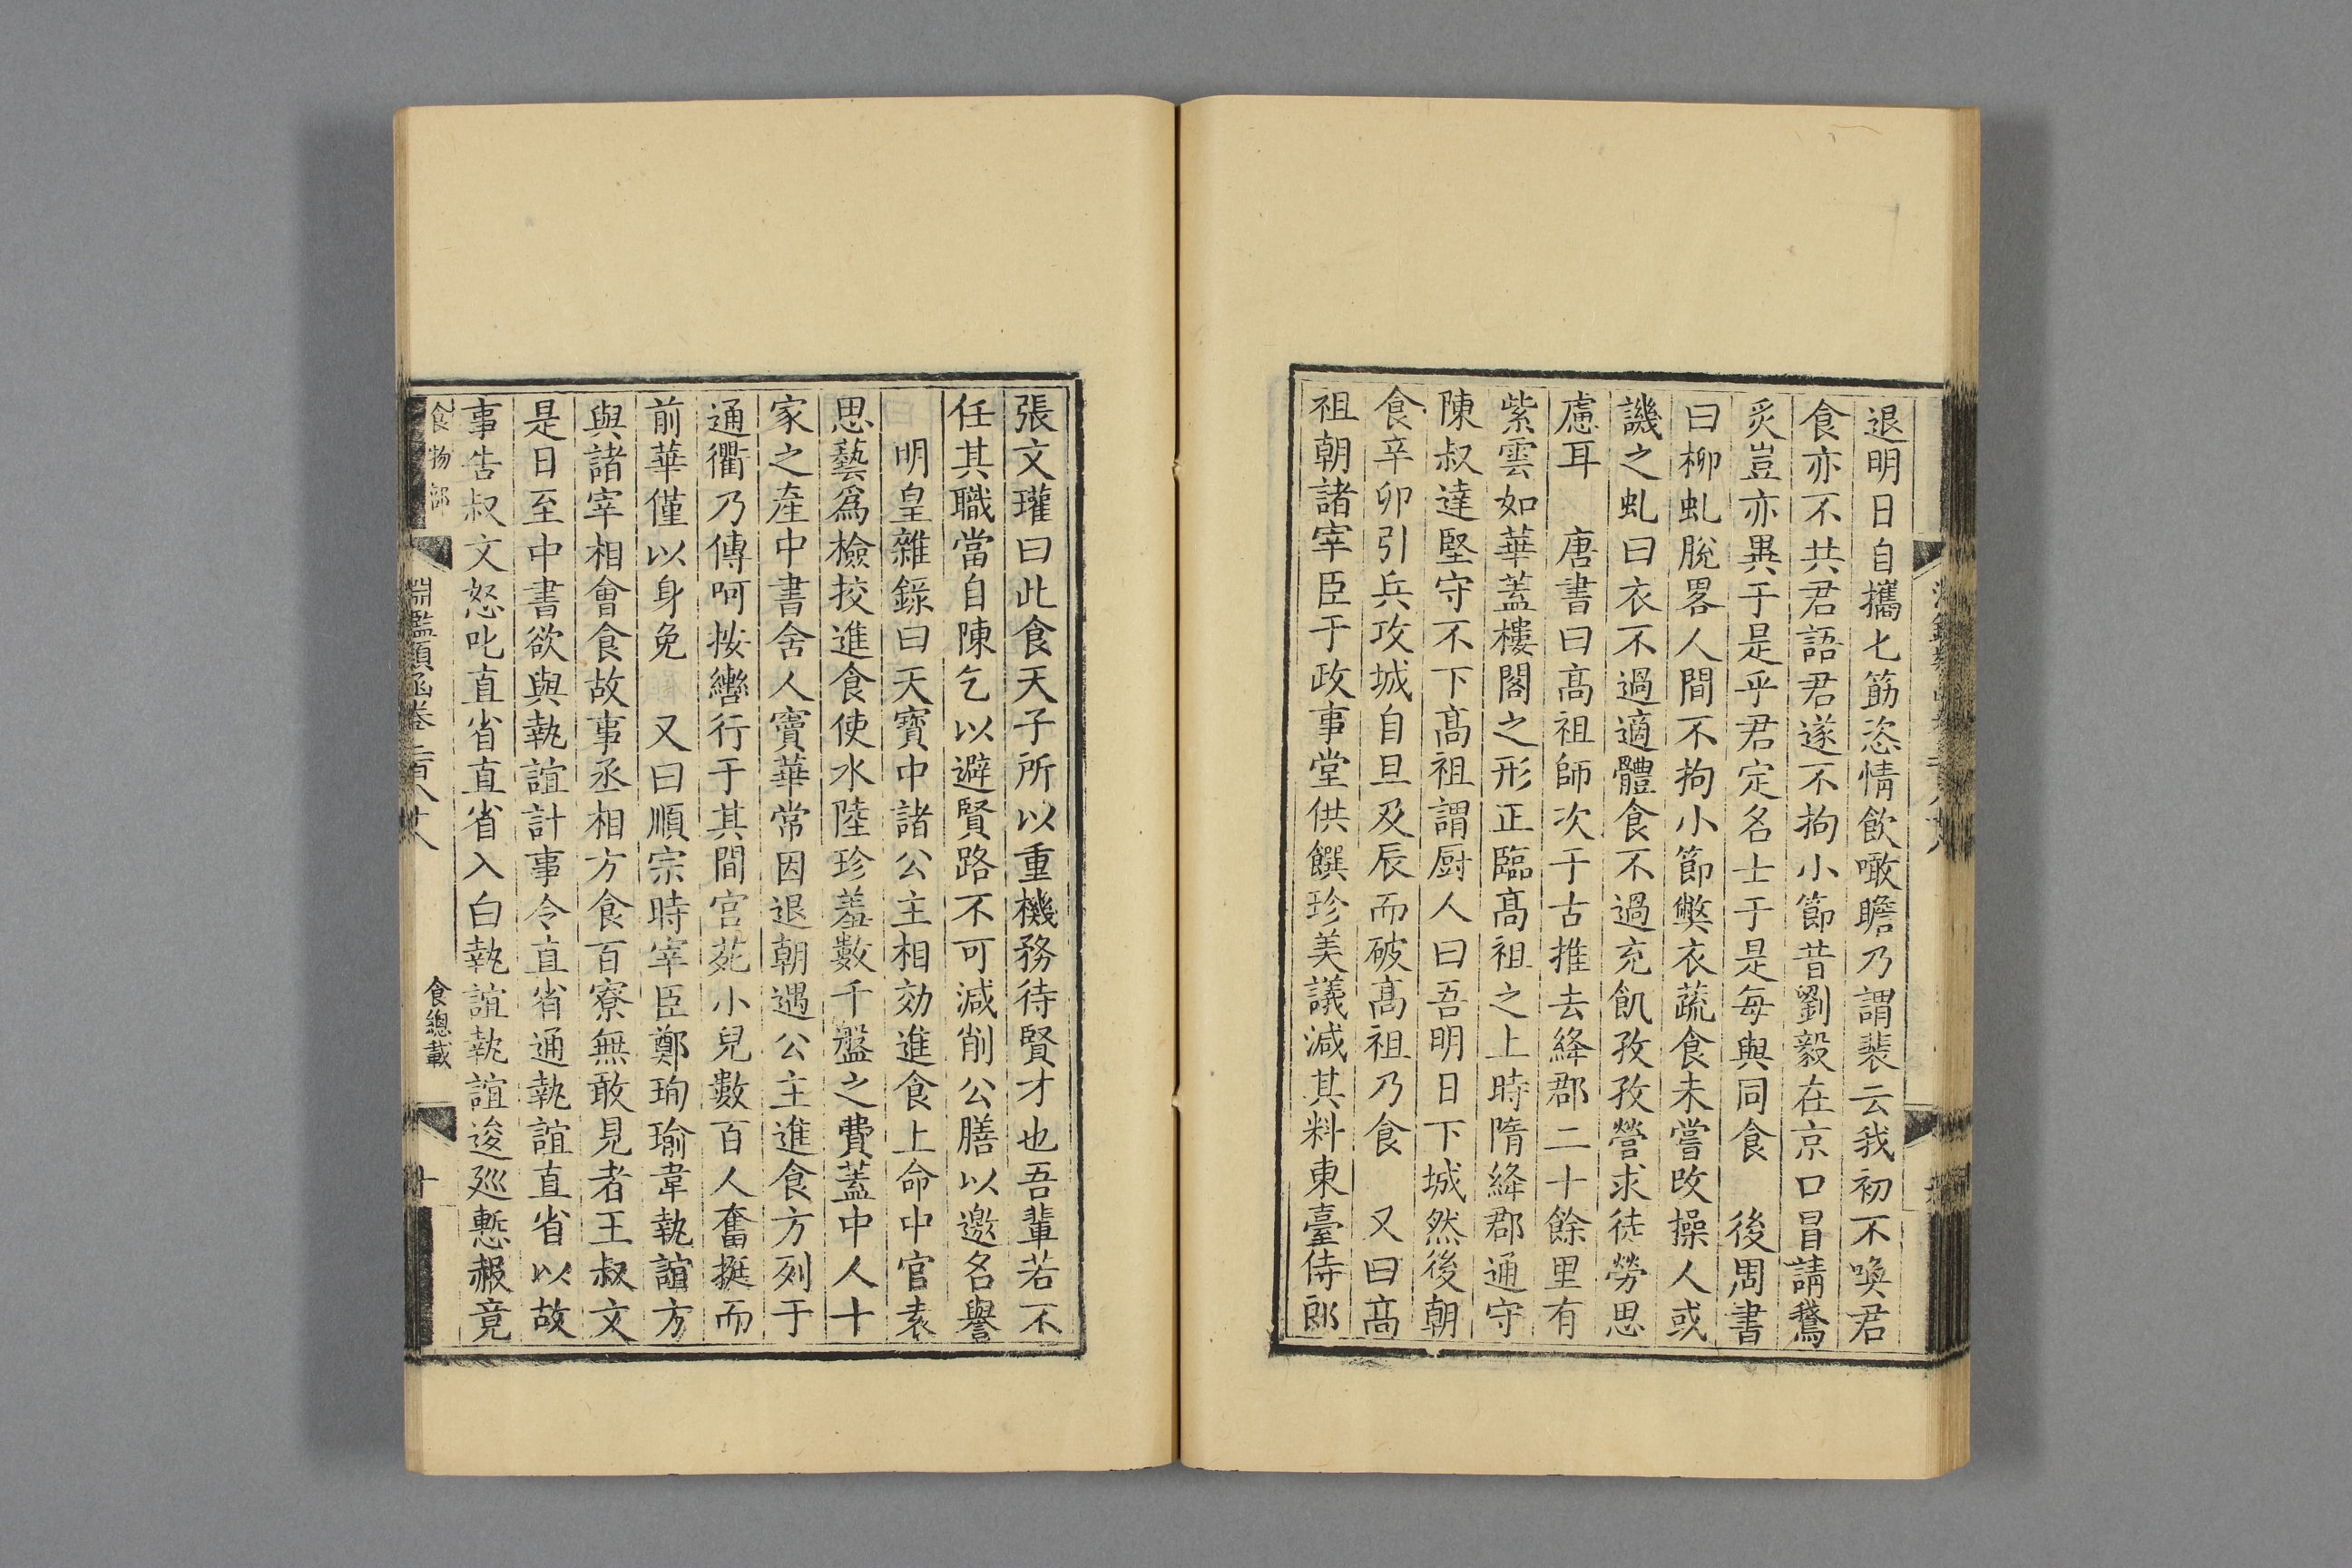 退明日自攜匕筯恣情飲噉瞻乃謂裴云我初不喚君
食亦不共君語君遂不拘小節昔劉毅在京口冒請鵞
炙豈亦異于是乎君定名士于是每與同食　後周書
曰柳虬脫畧人間不拘小節弊衣蔬食未嘗改操人或
譏之虬曰衣不過適體食不過充飢孜孜營求徒勞思
慮耳　唐書曰髙祖師次于古推去絳郡二十餘里有
紫雲如華蓋樓閣之形正臨髙祖之上時隋絳郡通守
陳叔達堅守不下髙祖謂厨人曰吾明日下城然後朝
食辛卯引兵攻城自旦及辰而破髙祖乃食　又曰髙
祖朝諸宰臣于政事堂供饌珍美議減其料東臺侍郎
張文瓘曰此食天子所以重機務待賢才也吾輩若不
任其職當自陳乞以避賢路不可減削公膳以邀名譽
明皇雜錄曰天寶中諸公主相効進食上命中官袁
思藝爲檢挍進食使水陸珍羞數千盤之費蓋中人十
家之產中書舍人竇華常因退朝遇公主進食方列于
通衢乃傳呵按轡行于其間宫苑小兒數百人奮挺而
前華僅以身免　又曰順宗時宰臣鄭珣瑜韋執誼方
與諸宰相會食故事丞相方食百寮無敢見者王叔文
是日至中書欲與執誼計事令直省通執誼直省以故
事告叔文怒叱直省直省入白執誼執誼逡巡慙赧竟
食物部　淵鑑類函卷三百八十八　食總載　十